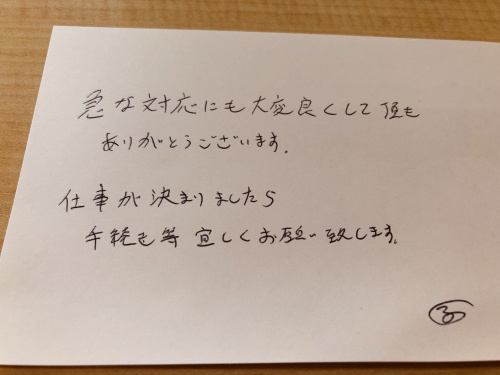 急な対応にも大変良くして頂き
ありがとうございます.
仕事が決まりましたら
手続き等 宜しくお願い致します.